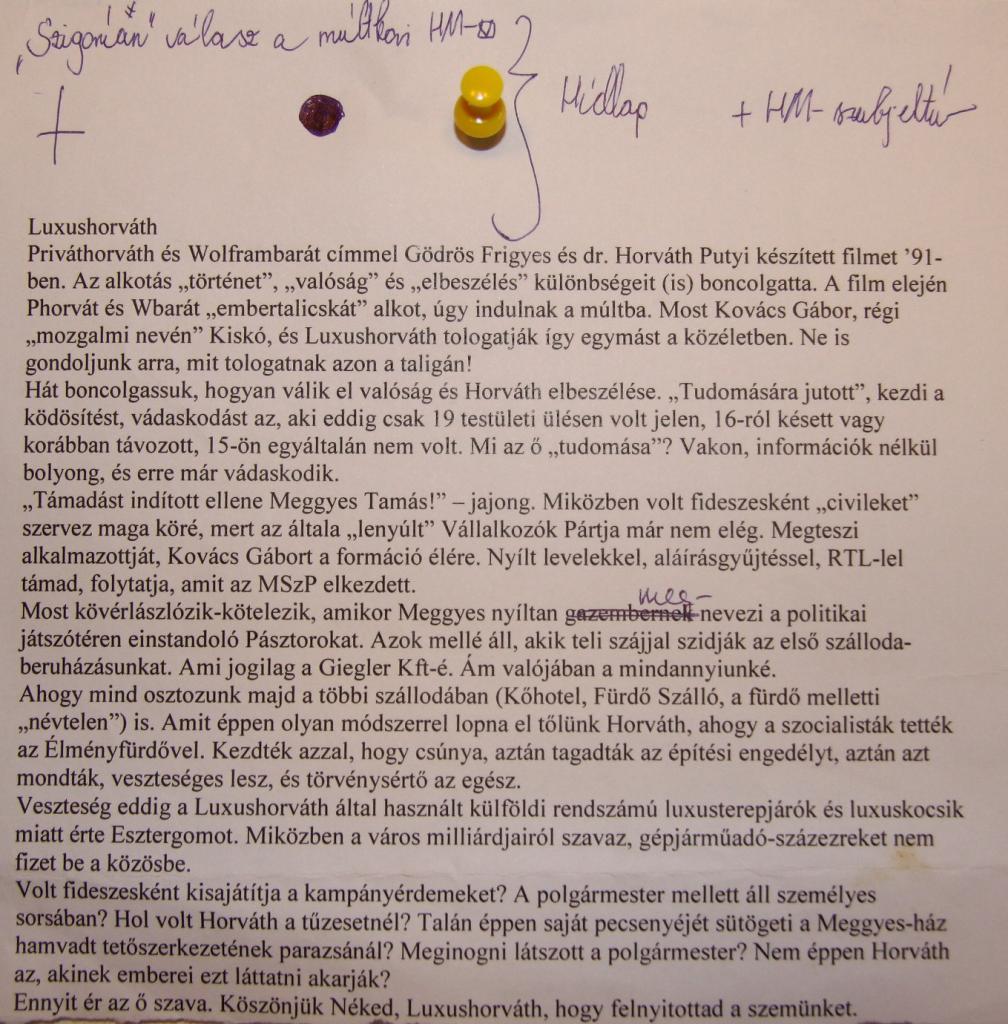 „Szigorúan" válasz a múltkori HM-
Hídlap
+ HM-szubjektív
Luxushorváth
Priváthorváth és Wolframbarát címmel Gödrös Frigyes és dr. Horváth Putyi készített filmet ’91-
ben. Az alkotás „történet”, „valóság” és „elbeszélés” különbségeit (is) boncolgatta. A film elején
Phorvát és Wbarát „embertalicskát” alkot, úgy indulnak a múltba. Most Kovács Gábor, régi
„mozgalmi nevén” Kiskó, és Luxushorváth tologatják így egymást a közéletben. Ne is
gondoljunk arra, mit tologatnak azon a taligán!
Hát boncolgassuk, hogyan válik el valóság és Horváth elbeszélése. „Tudomására jutott”, kezdi a
ködösítést, vádaskodást az, aki eddig csak 19 testületi ülésen volt jelen, 16-ról késett vagy
korábban távozott, 15-ön egyáltalán nem volt. Mi az ő „tudomása”? Vakon, információk nélkül
bolyong, és erre már vádaskodik.
„Támadást indított ellene Meggyes Tamás!” – jajong. Miközben volt fideszesként „civileket”
szervez maga köré, mert az általa „lenyúlt” Vállalkozók Pártja már nem elég. Megteszi
alkalmazottját, Kovács Gábort a formáció élére. Nyílt levelekkel, aláírásgyűjtéssel, RTL-lel
támad, folytatja, amit az MSzP elkezdett.
Most kövérlászlózik-kötelezik, amikor Meggyes nyíltan gazembernek meg-nevezi a politikai
játszótéren einstandoló Pásztorokat. Azok mellé áll, akik teli szájjal szidják az első szálloda-
beruházásunkat. Ami jogilag a Giegler Kft-é. Ám valójában a mindannyiunké.
Ahogy mind osztozunk majd a többi szállodában (Kőhotel, Fürdő Szálló, a fürdő melletti
„névtelen”) is. Amit éppen olyan módszerrel lopna el tőlünk Horváth, ahogy a szocialisták tették
az Élményfürdővel. Kezdték azzal, hogy csúnya, aztán tagadták az építési engedélyt, aztán azt
mondták, veszteséges lesz, és törvénysértő az egész.
Veszteség eddig a Luxushorváth által használt külföldi rendszámú luxusterepjárók és luxuskocsik
miatt érte Esztergomot. Miközben a város milliárdjairól szavaz, gépjárműadó-százezreket nem
fizet be a közösbe.
Volt fideszesként kisajátítja a kampányérdemeket? A polgármester mellett áll személyes
sorsában? Hol volt Horváth a tűzesetnél? Talán éppen saját pecsenyéjét sütögeti a Meggyes-ház
hamvadt tetőszerkezetének parazsánál? Meginogni látszott a polgármester? Nem éppen Horváth
az, akinek emberei ezt láttatni akarják?
Ennyit ér az ő szava. Köszönjük Néked, Luxushorváth, hogy felnyitottad a szemünket.